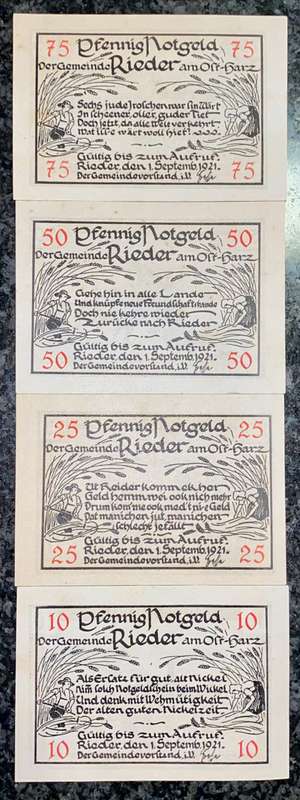 75 Pfennig Notgeld 75
Der Gemeinde Rieder am Ost-Harz
Sechs jude Jroschen war sin Wärt
In scheener, oller, guder Tiet
Doch jetzt, da alle welt verkehrt
Wat is's wärt woll hiet?
Gültig bis zum Aufruf.
75 Rieder, den 1. Septemb. 1921. 75
Der Gemeindevorstand, i.V.
50 Pfennig Notgeld 50
Der Gemeinde Rieder am Ost-Harz
Gehe hin in alle Lande
Und knüpfe neue Freundschaftsbande
Doch nie kehre wieder
Zurücke nach Rieder
Gültig bis zum Aufruf.
50 Rieder, den 1. Septemb. 1921. 50
Der Gemeindevorstand, i.V.
25 Pfennig Notgeld 25
Der Gemeinde Rieder am Ost-Harz
Ut Reider komm ek hor
Geld hemm wei ook nich mehr
Drum kom me ook med't nie Geld
Dat manichen jut, manichen
schlecht jefällt
Gültig bis zum Aufruf.
25 Rieder, den 1. Septemb. 1921. 25
Der Gemeindevorstand, i.V.
10 Pfennig Notgeld 10
Der Gemeinde Rieder am Ost-Harz
Als Ersatz für gut alt Nickel
Nim solch Notgeldschein beim Wickel
Und denk mit Wehmütigkeit
Der alten guten Nickelzeit
Gültig bis zum Aufruf.
10 Rieder, den 1. Septemb. 1921. 10
Der Gemeindevorstand, i.V.